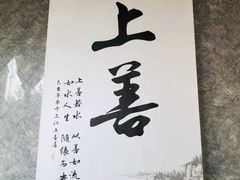 上善
上善若水 从善如流
如水人生 随缘而安